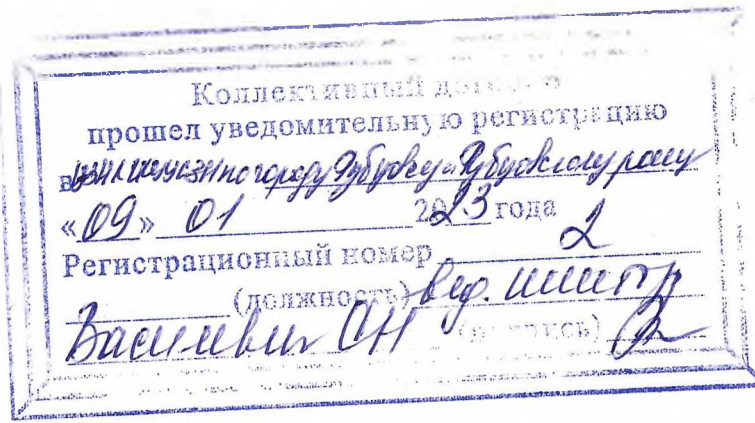 Коллективный договор
прошел уведомительную регистрацию
в по городу Рубцовску и Рубцовскому району
«09» 01 2023 года
Регистрационный номер 2
(должность) вед. инспектор
Василевич ОН (подпись)